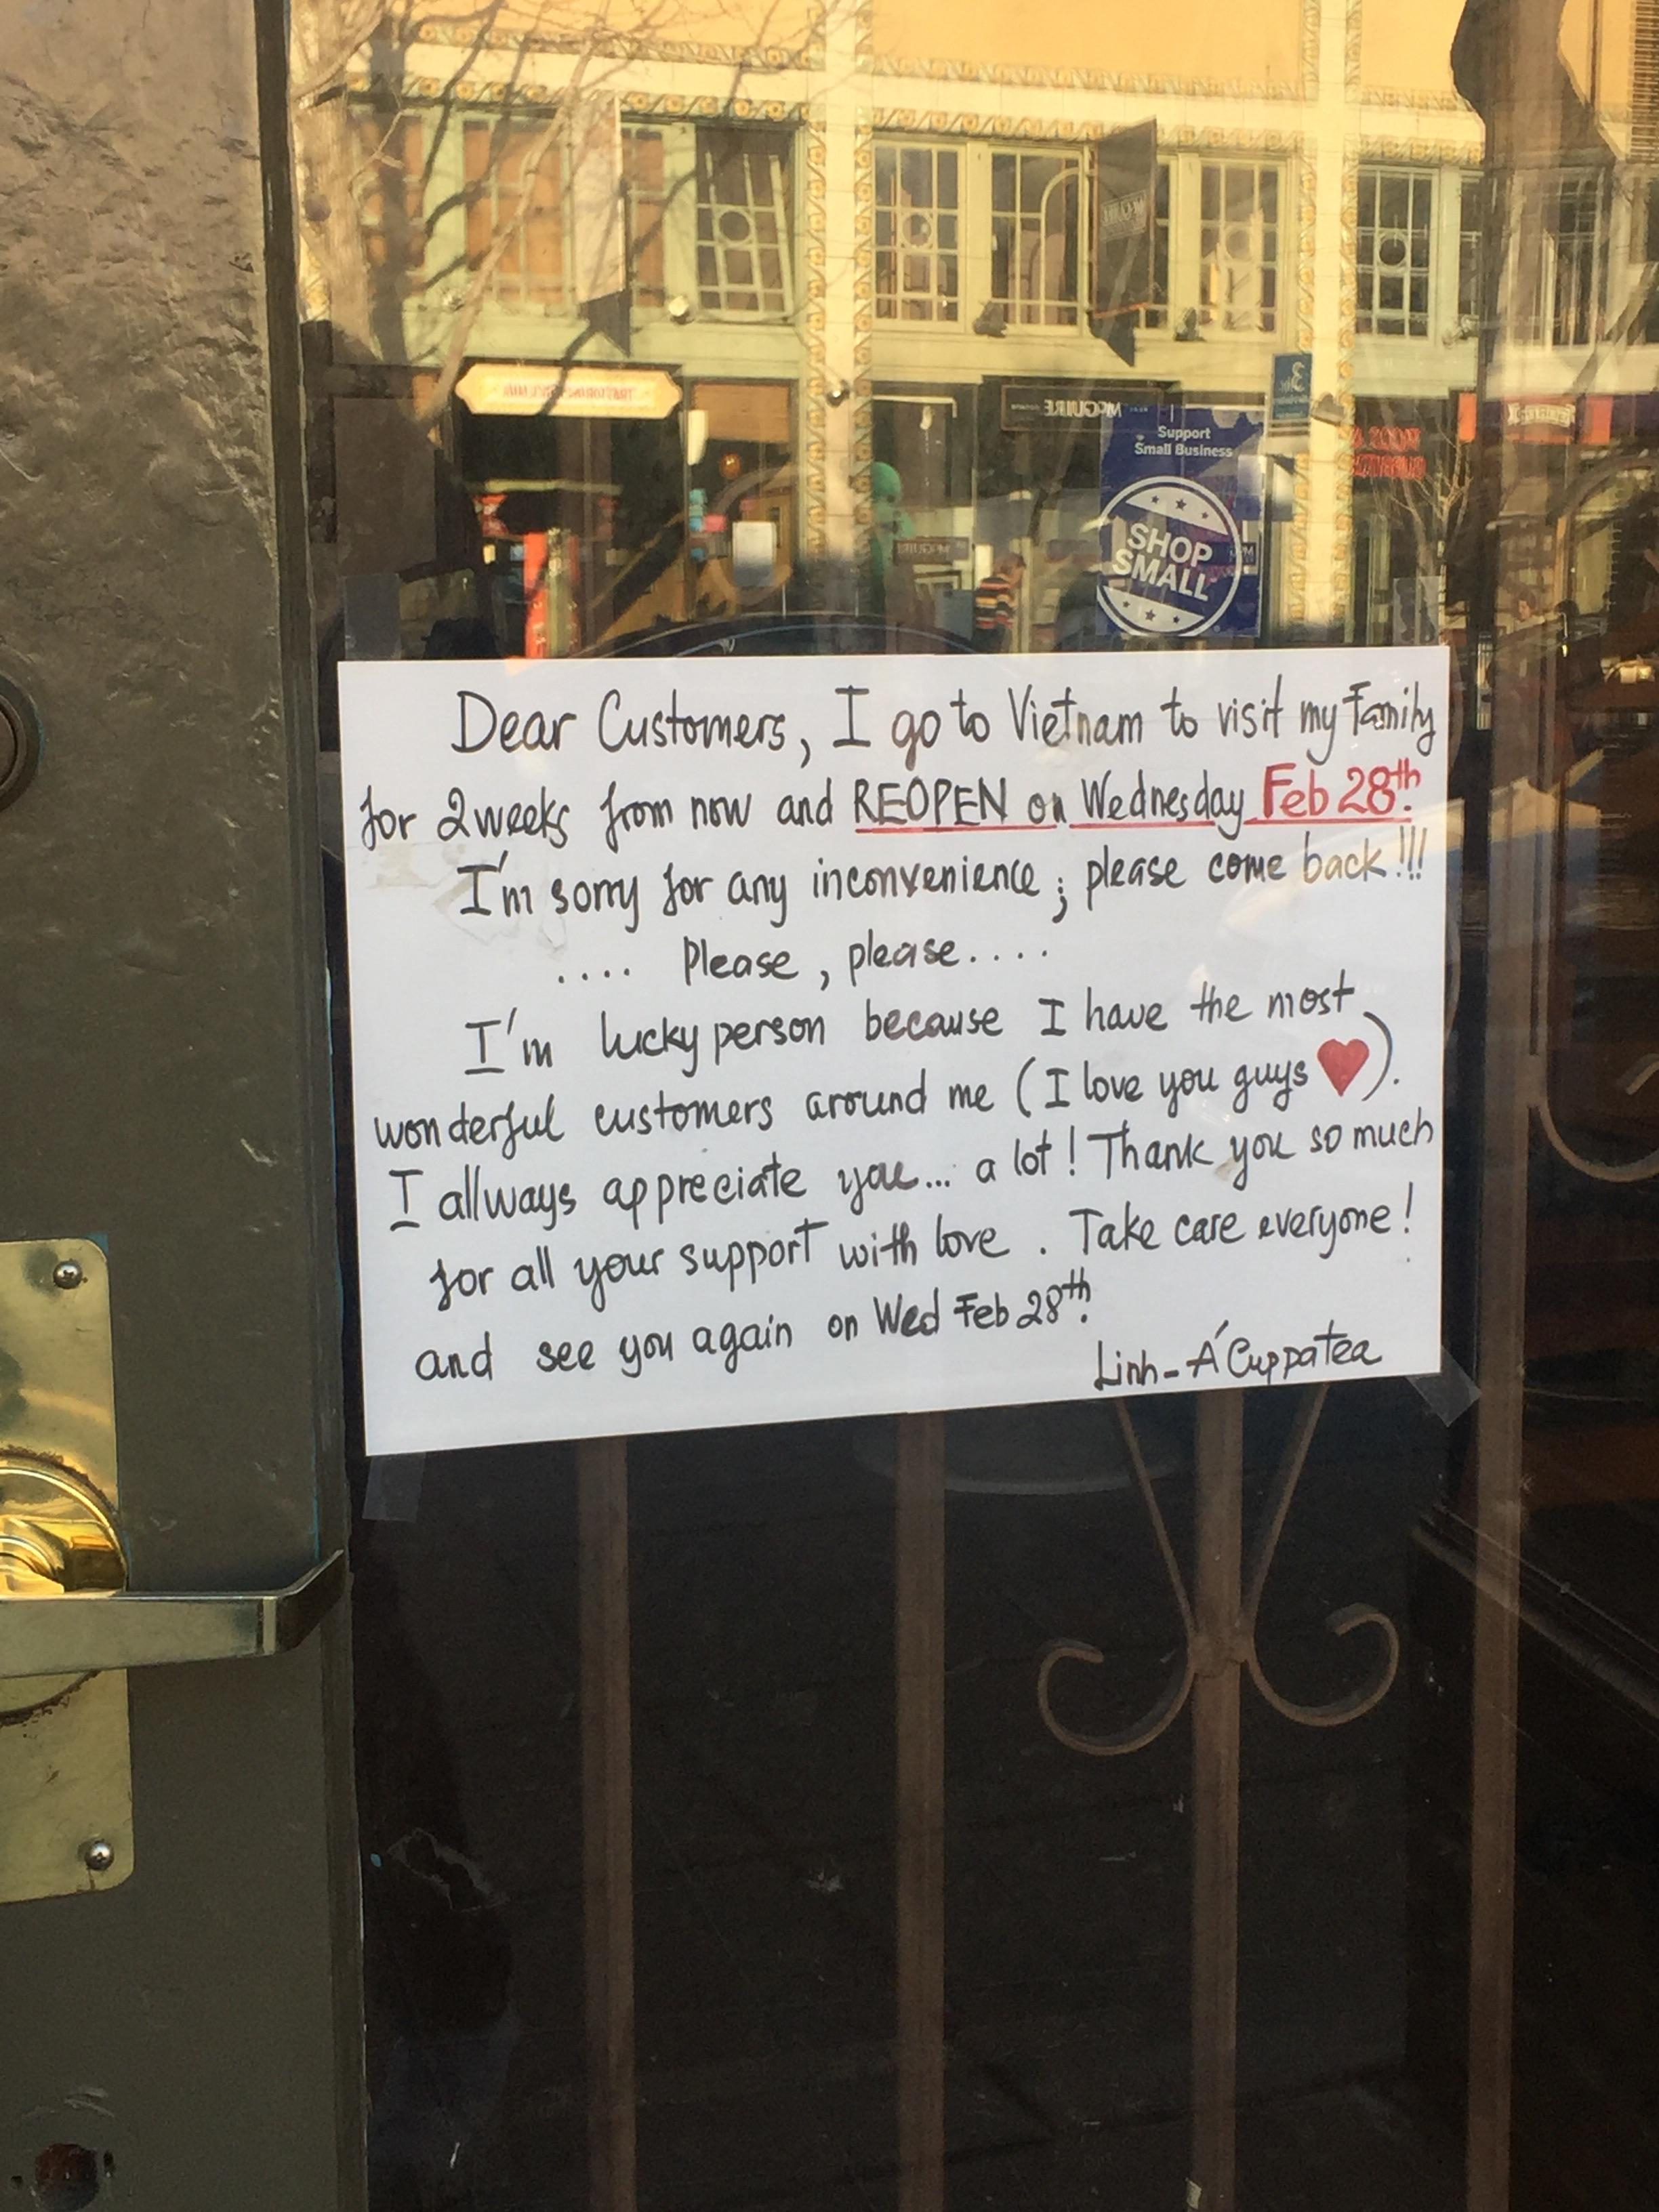 Support
Small Business
SHOP
SMALL
McGUIRE
Dear Customers, I go to Vietnam to visit my Family
for 2 weeks from now and REOPEN on Wednesday Feb 28th.
I'm sorry for any inconvenience; please come back!!!
.... Please, please....
I'm lucky person because I have the most
wonderful customers around me (I love you guys ❤).
I allways appreciate you... a lot! Thank you so much
for all your support with love. Take care everyone!
and see you again on Wed Feb 28th.
Linh - Á Cuppa tea